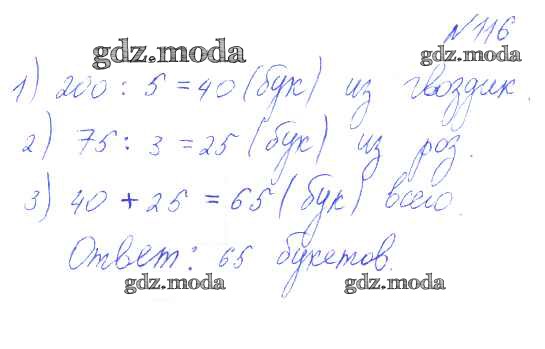 №116
gdz.moda gdz.moda
1) 200 : 5 = 40 (бук) из гвоздик.
2) 75 : 3 = 25 (бук) из роз.
3) 40 + 25 = 65 (бук) всего.
Ответ: 65 букетов.
gdz.moda gdz.moda